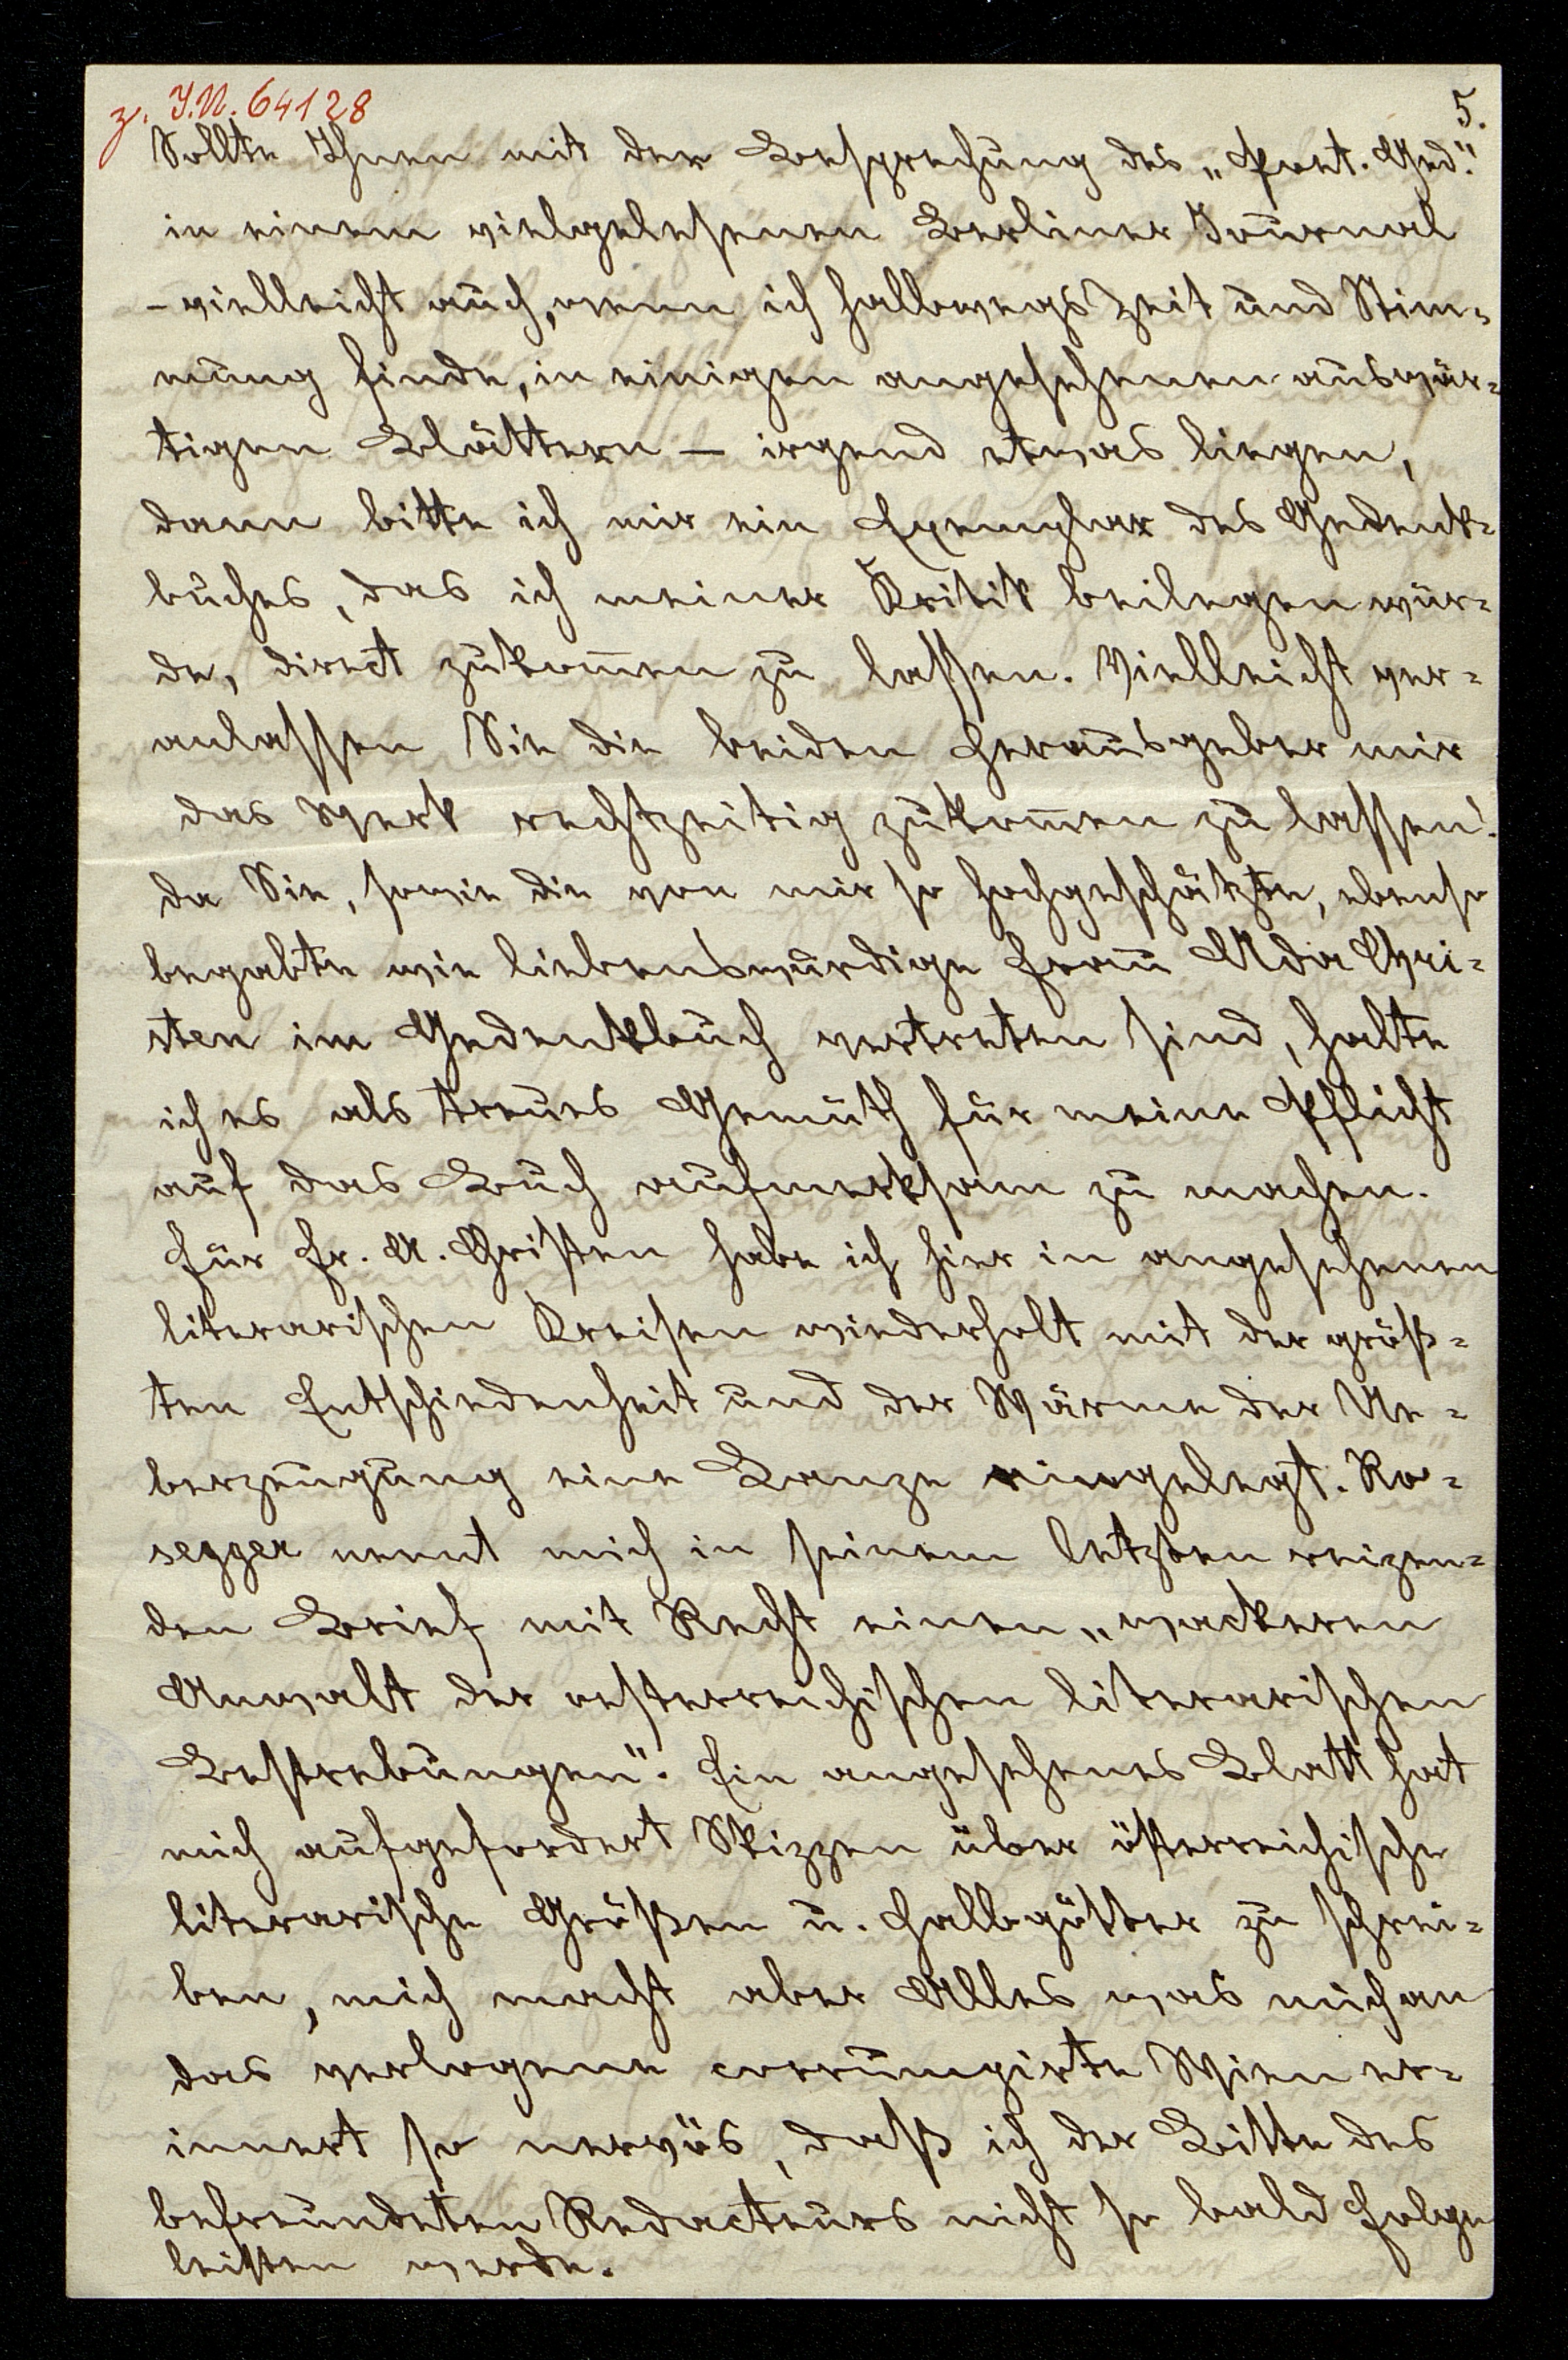 z. I.N. 64128
5.
Sollte Ihnen mit der Besprechung des „Poet. Ged."
in einem vielgelesenen Berliner Journal
– vielleicht auch, wenn ich halbwegs Zeit und Stim-
mung finde, in einigen angesehenen auswär-
tigen Blättern – irgend etwas liegen,
dann bitte ich mir ein Exemplar des Gedenk-
buches, das ich meiner Kritik beilegen wür-
de, direct zukom̅en zu lassen. Vielleicht ver-
anlassen Sie die beiden Herausgeber mir
das Werk rechtzeitig zukom̅en zu lassen!
da Sie, sowie die von mir so hochgeschätzte, ebenso
begabte wie liebenswürdige Frau Ada Chri-
sten im Gedenkbuch vertreten sind, halte
ich es als treues Gemüth für meine Pflicht
auf das Buch aufmerksam zu machen.
Für Fr. A. Christen habe ich hier in angesehenen
literarischen Kreisen wiederholt mit der größ-
ten Entschiedenheit und der Wärme der Ue-
berzeugung eine Lanze eingelegt. Ro-
segger nennt mich in seinem letzten reizen-
den Brief mit Recht einen „wackeren
Anwalt der oesterreichischen literarischen
Bestrebungen". Ein angesehenes Blatt hat
mich aufgefordert Skizzen über österreichische
literarische Größen u. Halbgötter zu schrei-
ben, mich macht aber Alles was mich an
das verlogene corrumpirte Wien er-
innert so nervös, daß ich der Bitte des
befreundeten Redacteurs nicht so bald Folge
leisten werde.